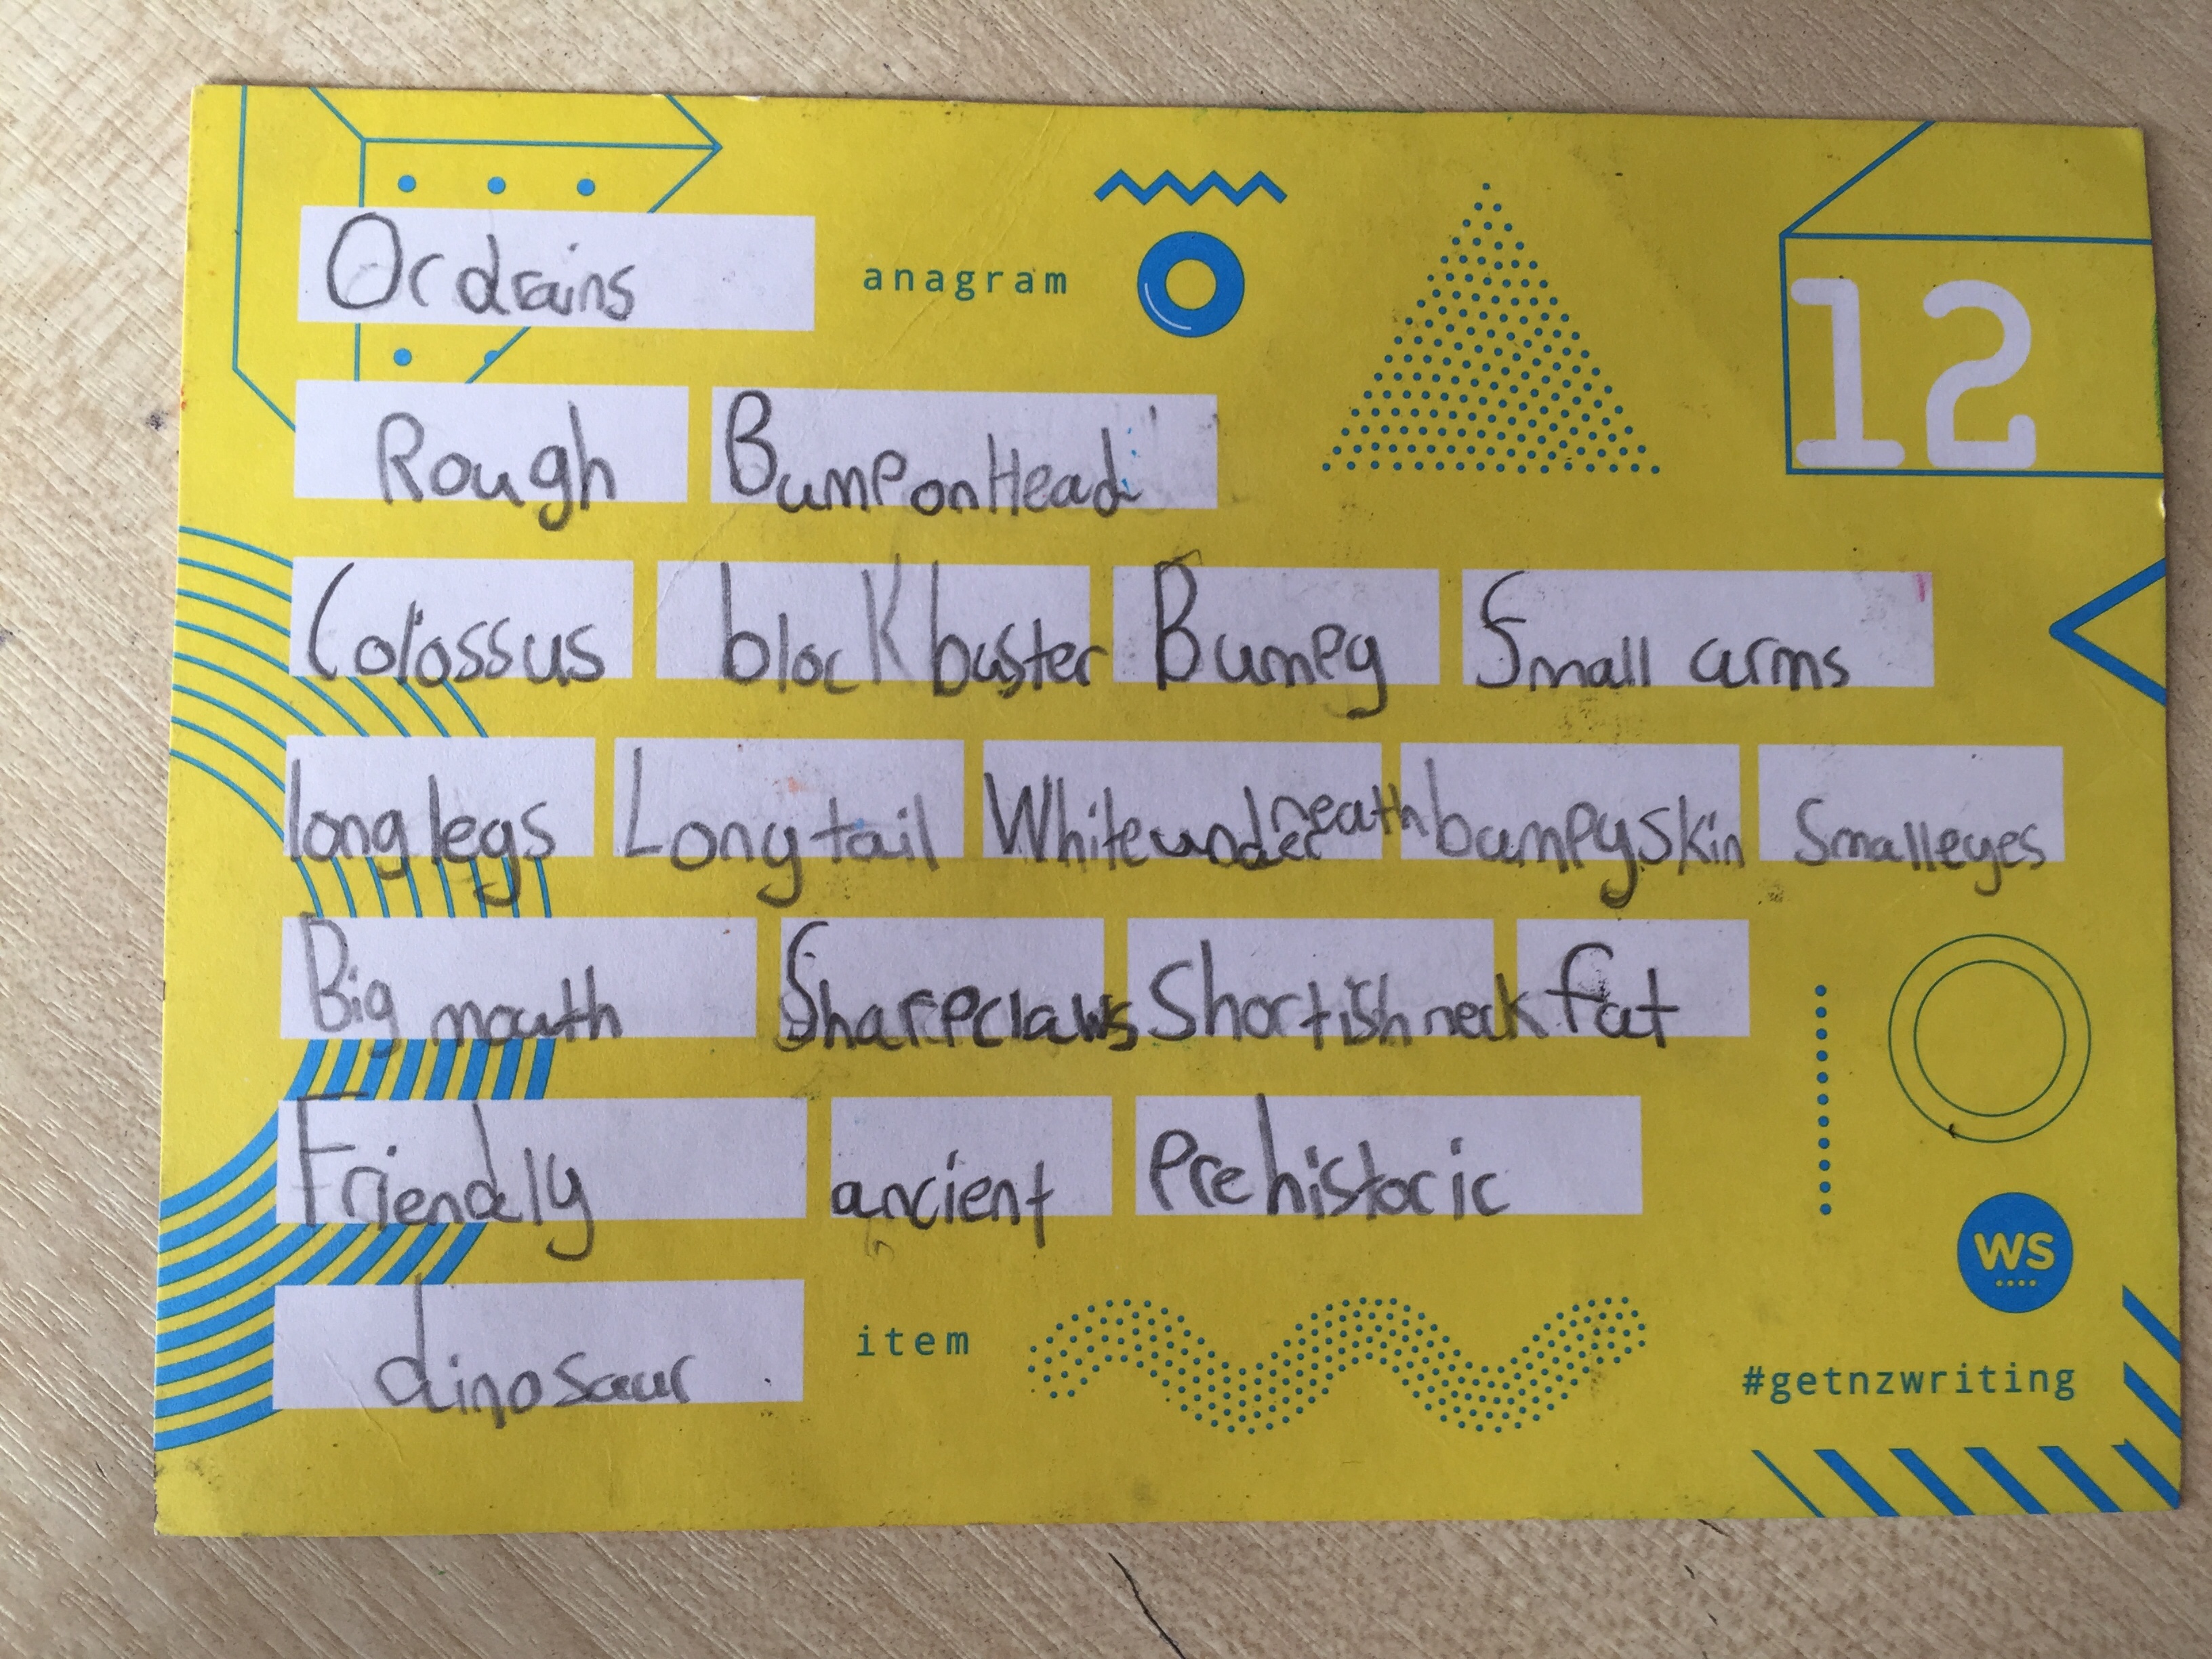 Ordrains anagram
12
Rough Bump on Head
Colossus block buster Bumpy Small arms
long legs Long tail White underneath bumpy skin Small eyes
Big mouth Sharp claws Shortish neck fat
Friendly ancient Prehistoric
WS
dinosaur item
#getnzwriting